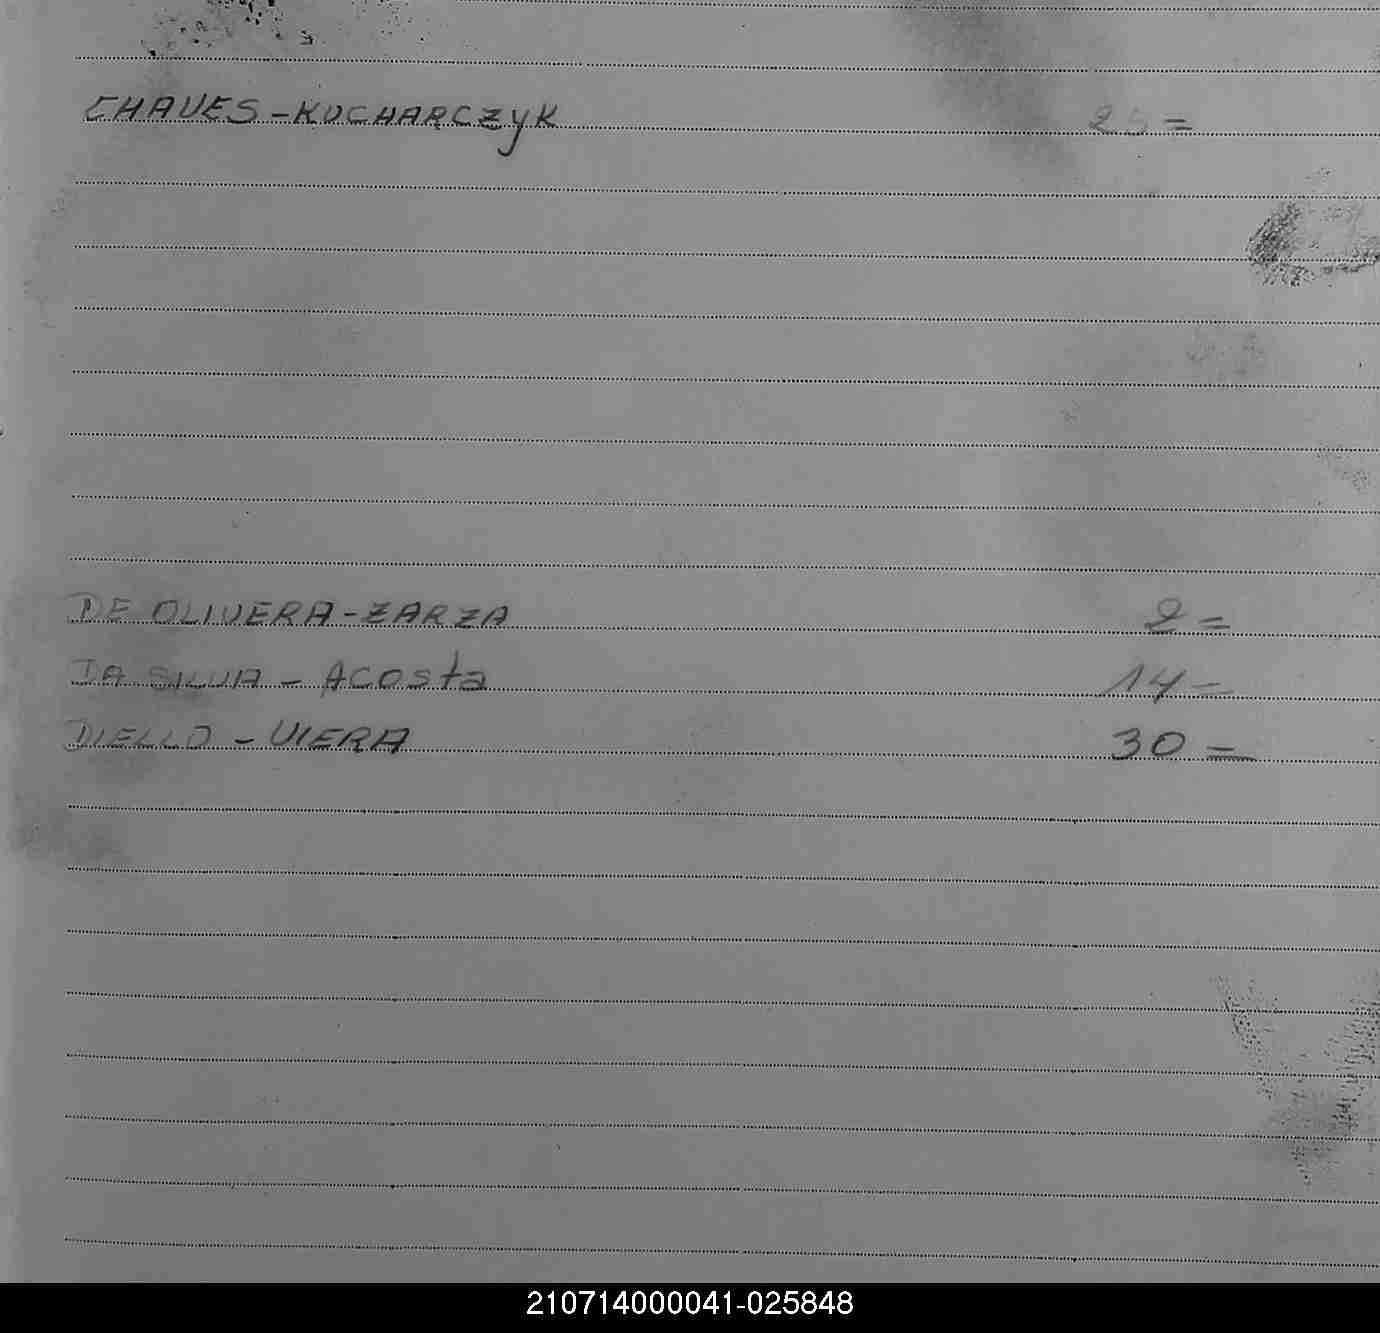 CHAVES-KUCHARCZYK 25=
DE OLIVERA-ZARZA 2=
DA SILVA - ACOSTA 14=
DIELLO - VIERA 30=
210714000041-025848